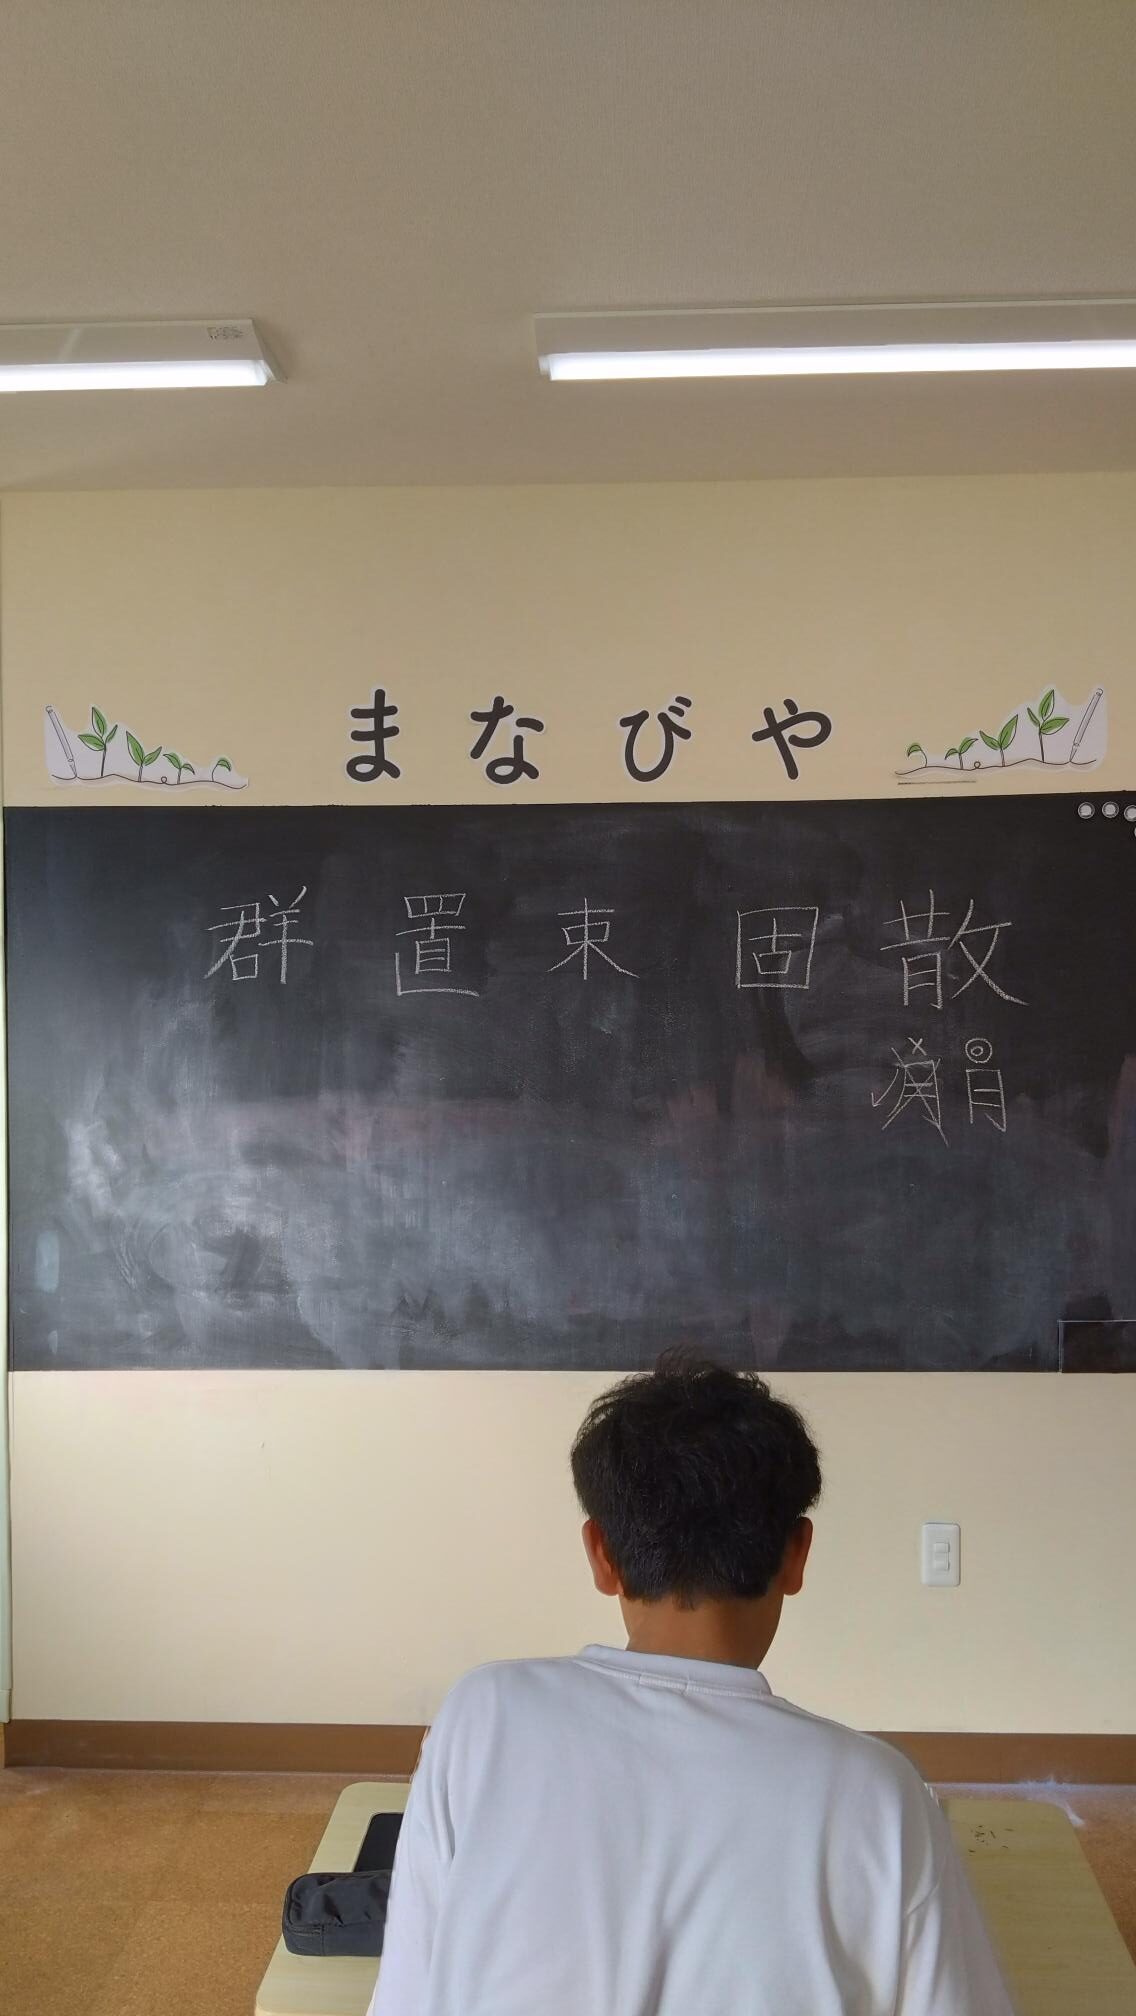 まなびや
群 置 束 固 散
× ◎
月 月